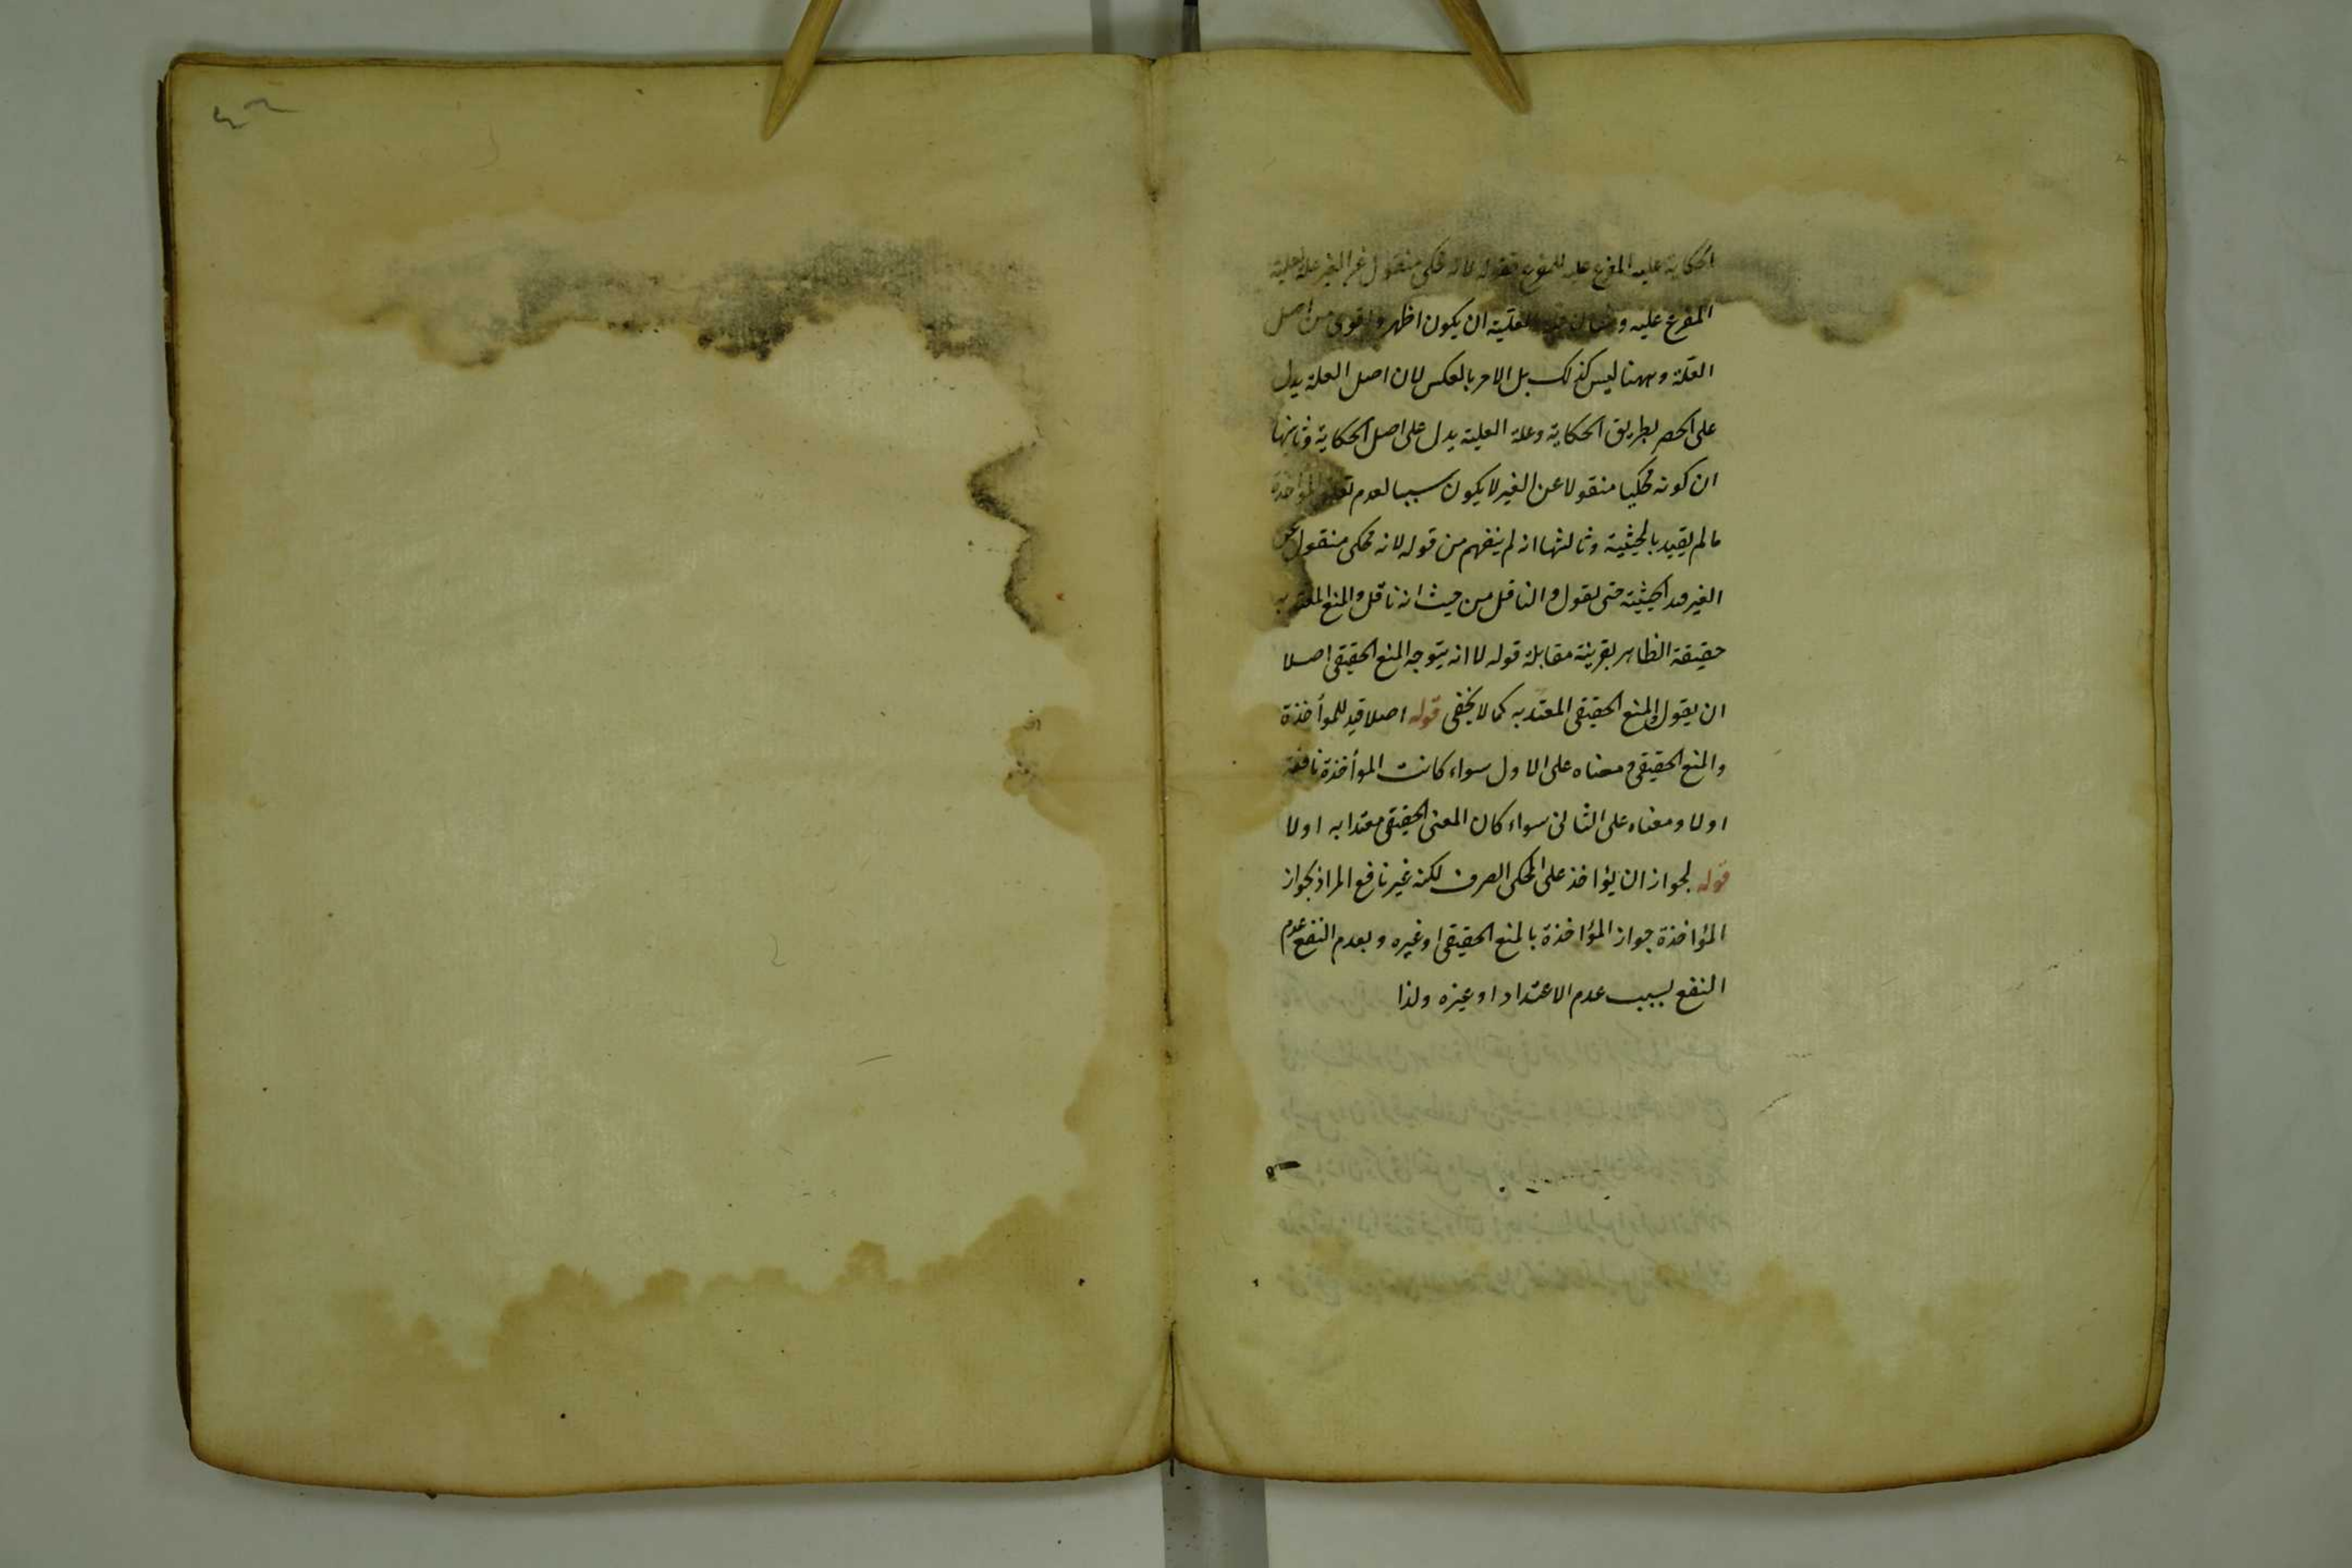 الحكاية عليه المفرع عليه للمفرع فقوله لانه محكى منقول عن الغير علة لعلية
المفرع عليه و العلية ان يكون اظهر واقوى من اصل
العلة وههنا ليس كذلك بل الامر بالعكس لان اصل العلة يدل
على الحصر بطريق الحكاية وعلة العلية يدل على اصل الحكاية وثانيها
ان كونه محكيا منقولا عن الغير لا يكون سببا لعدم المؤاخذة
ما لم يقيد بالحيثية وثالثها انه لم ينفهم من قوله لانه محكى منقول عن
الغير قيد الحيثية حتى يقول والناقل من حيث انه ناقل والمنع المعتد به
حقيقة الظاهر بقرينة مقابلة قوله لا انه يتوجه المنع الحقيقى اصلا
ان يقول والمنع الحقيقى المعتد به كما لا يخفى قوله اصلا قيد للموأخذة
والمنع الحقيقى ومعناه على الاول سواء كانت الموأخذة نافعة
اولا ومعناه على الثانى سواء كان المعنى الحقيقى معتدا به اولا
قوله لجواز ان يؤاخذ على المحكى الصرف لكنه غير نافع المراد بجواز
المؤاخذة جواز المؤاخذة بالمنع الحقيقى او غيره وبعدم النفع عدم
النفع بسبب عدم الاعتداد او غيره ولذا